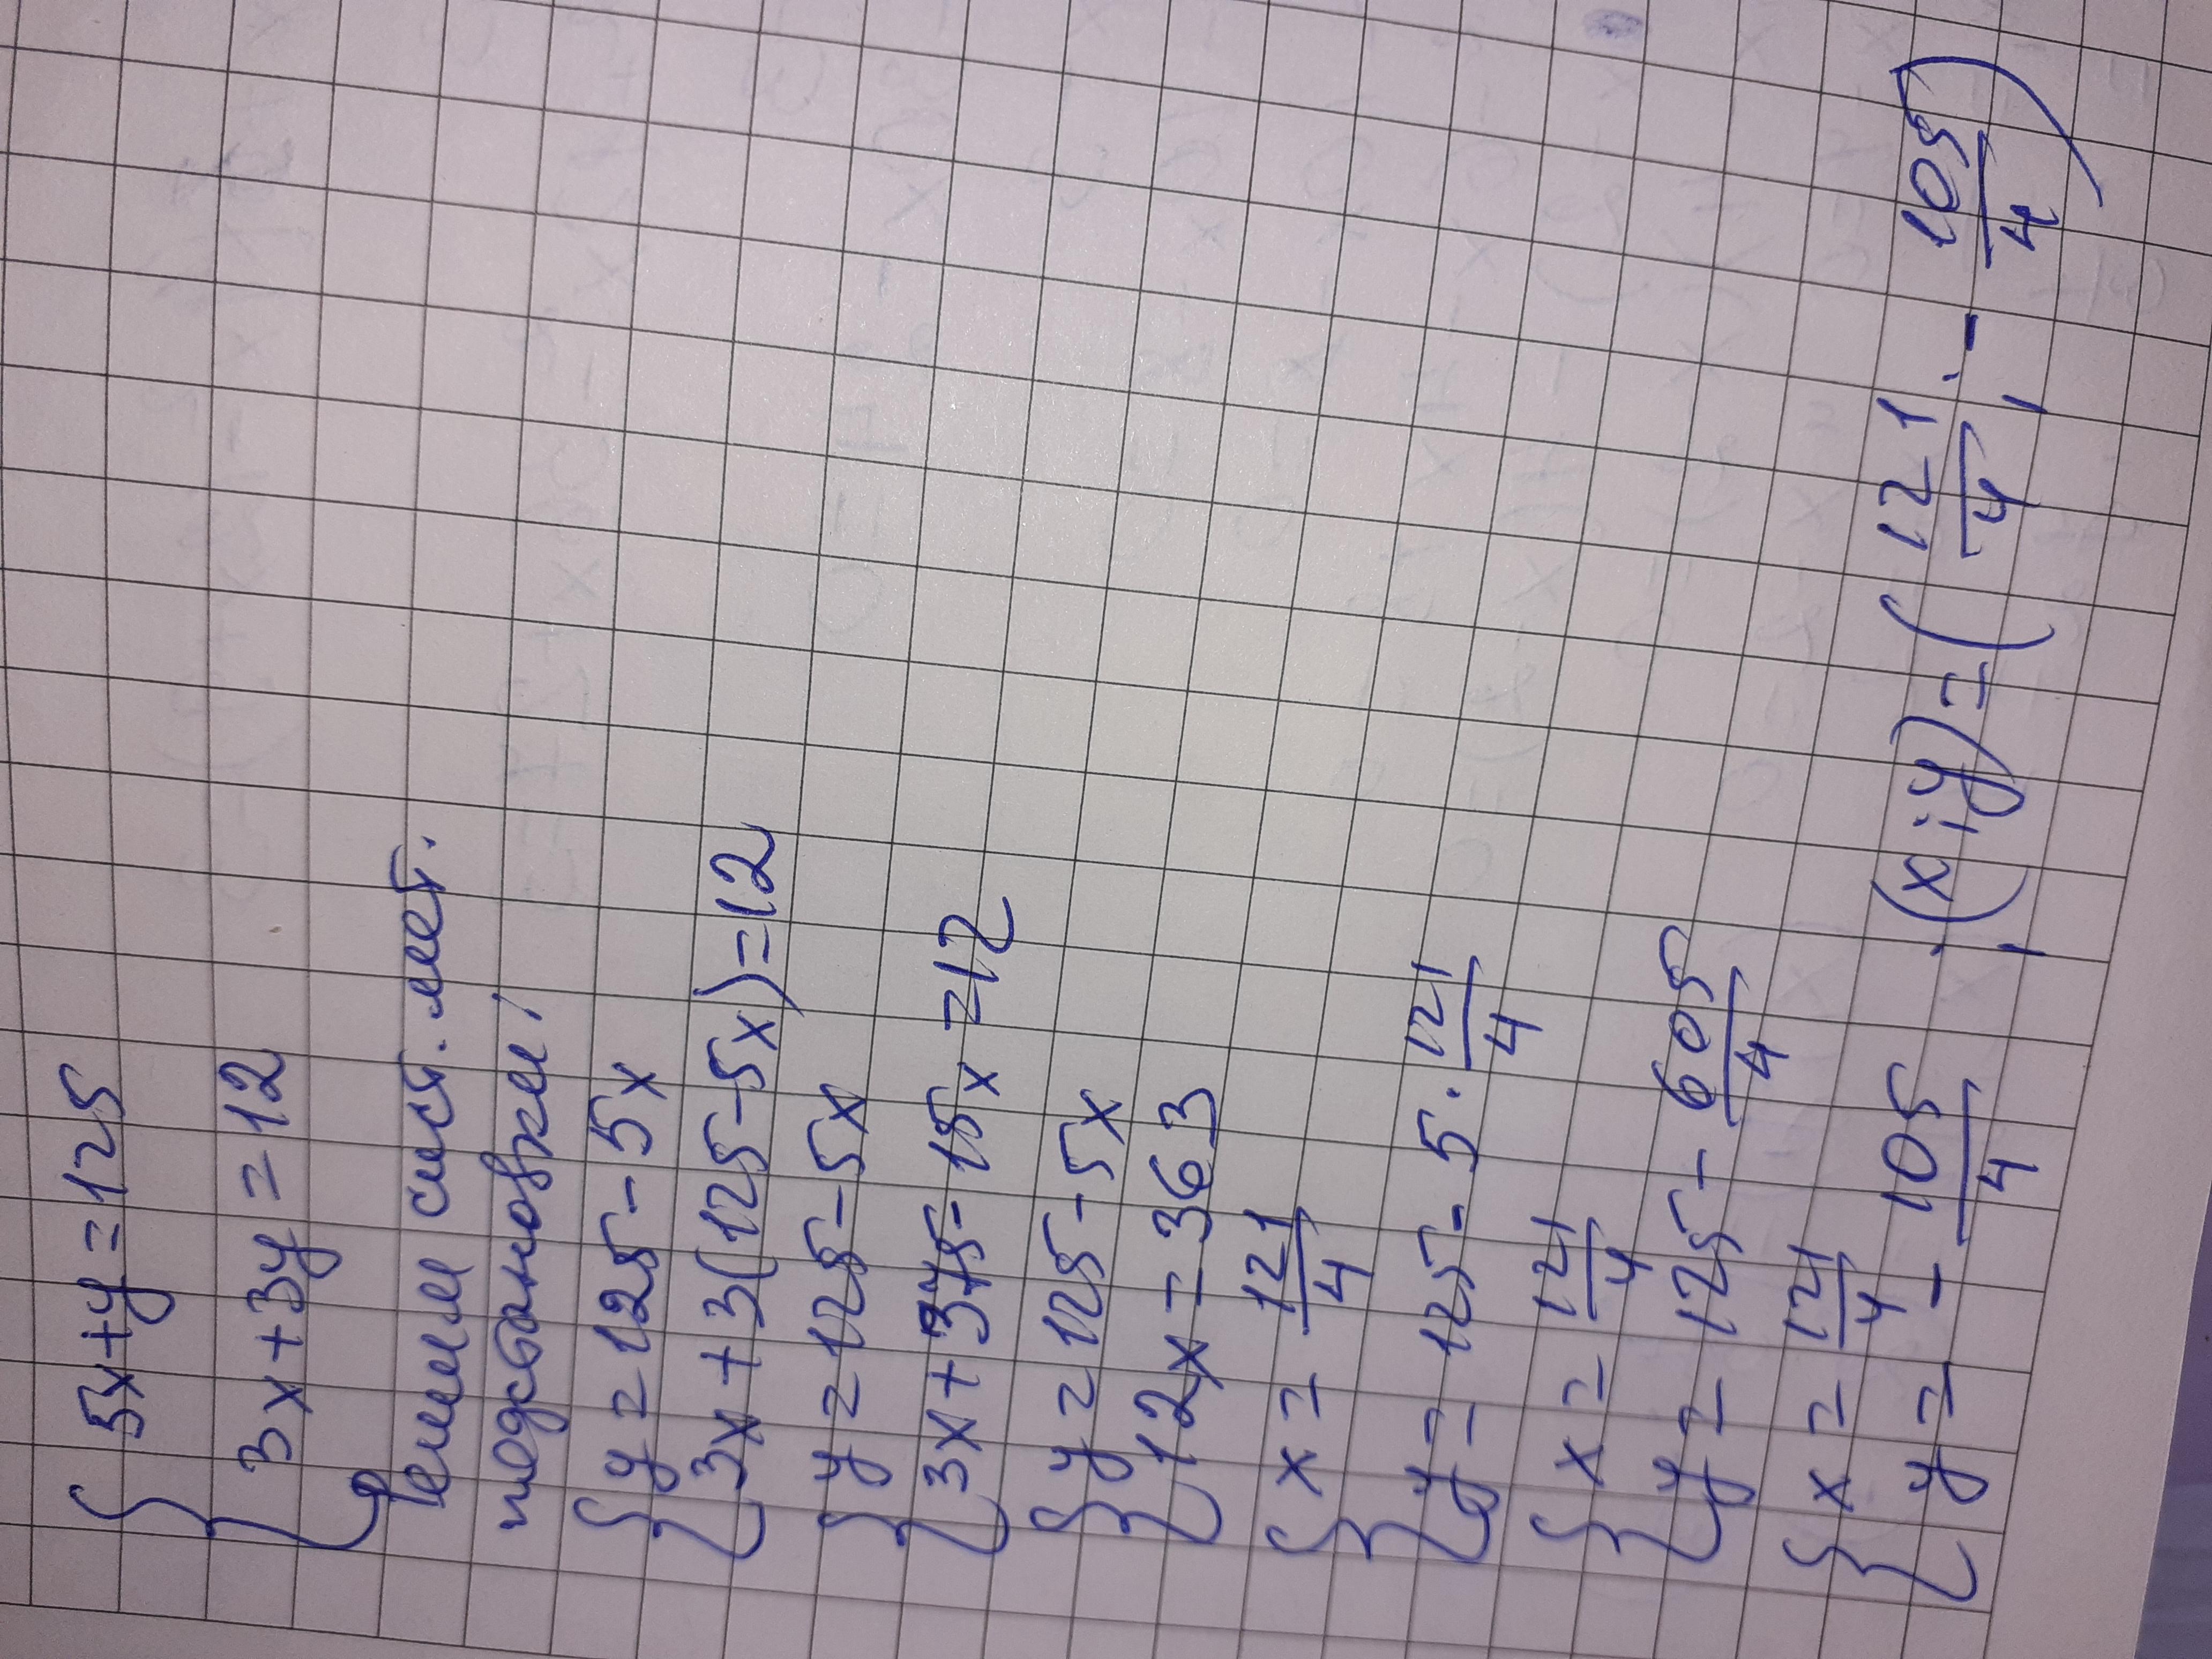 { 5x+y=125
3x+3y=12
Решим сист. мет.
подстановки:
{ y=125-5x
3x+3(125-5x)=12
{ y=125-5x
3x+375-15x=12
{ y=125-5x
12x=363
{ x=121/4
y=125-5·121/4
{ x=121/4
y=125-605/4
{ x=121/4
y=-105/4 ; (x;y)=(121/4;-105/4)